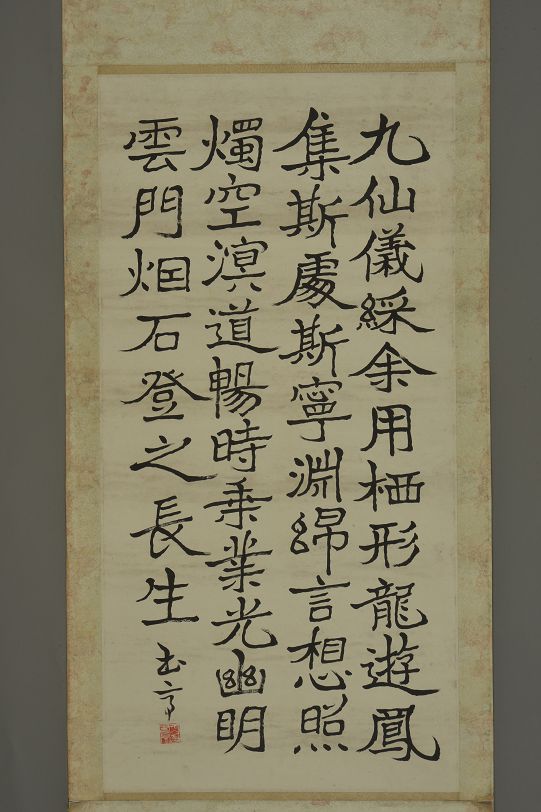 九仙儀綵余用栖形龍遊鳳
集斯處斯寧淵綿言想照
燭空溟道暢時乗業光幽明
雲門烟石登之長生